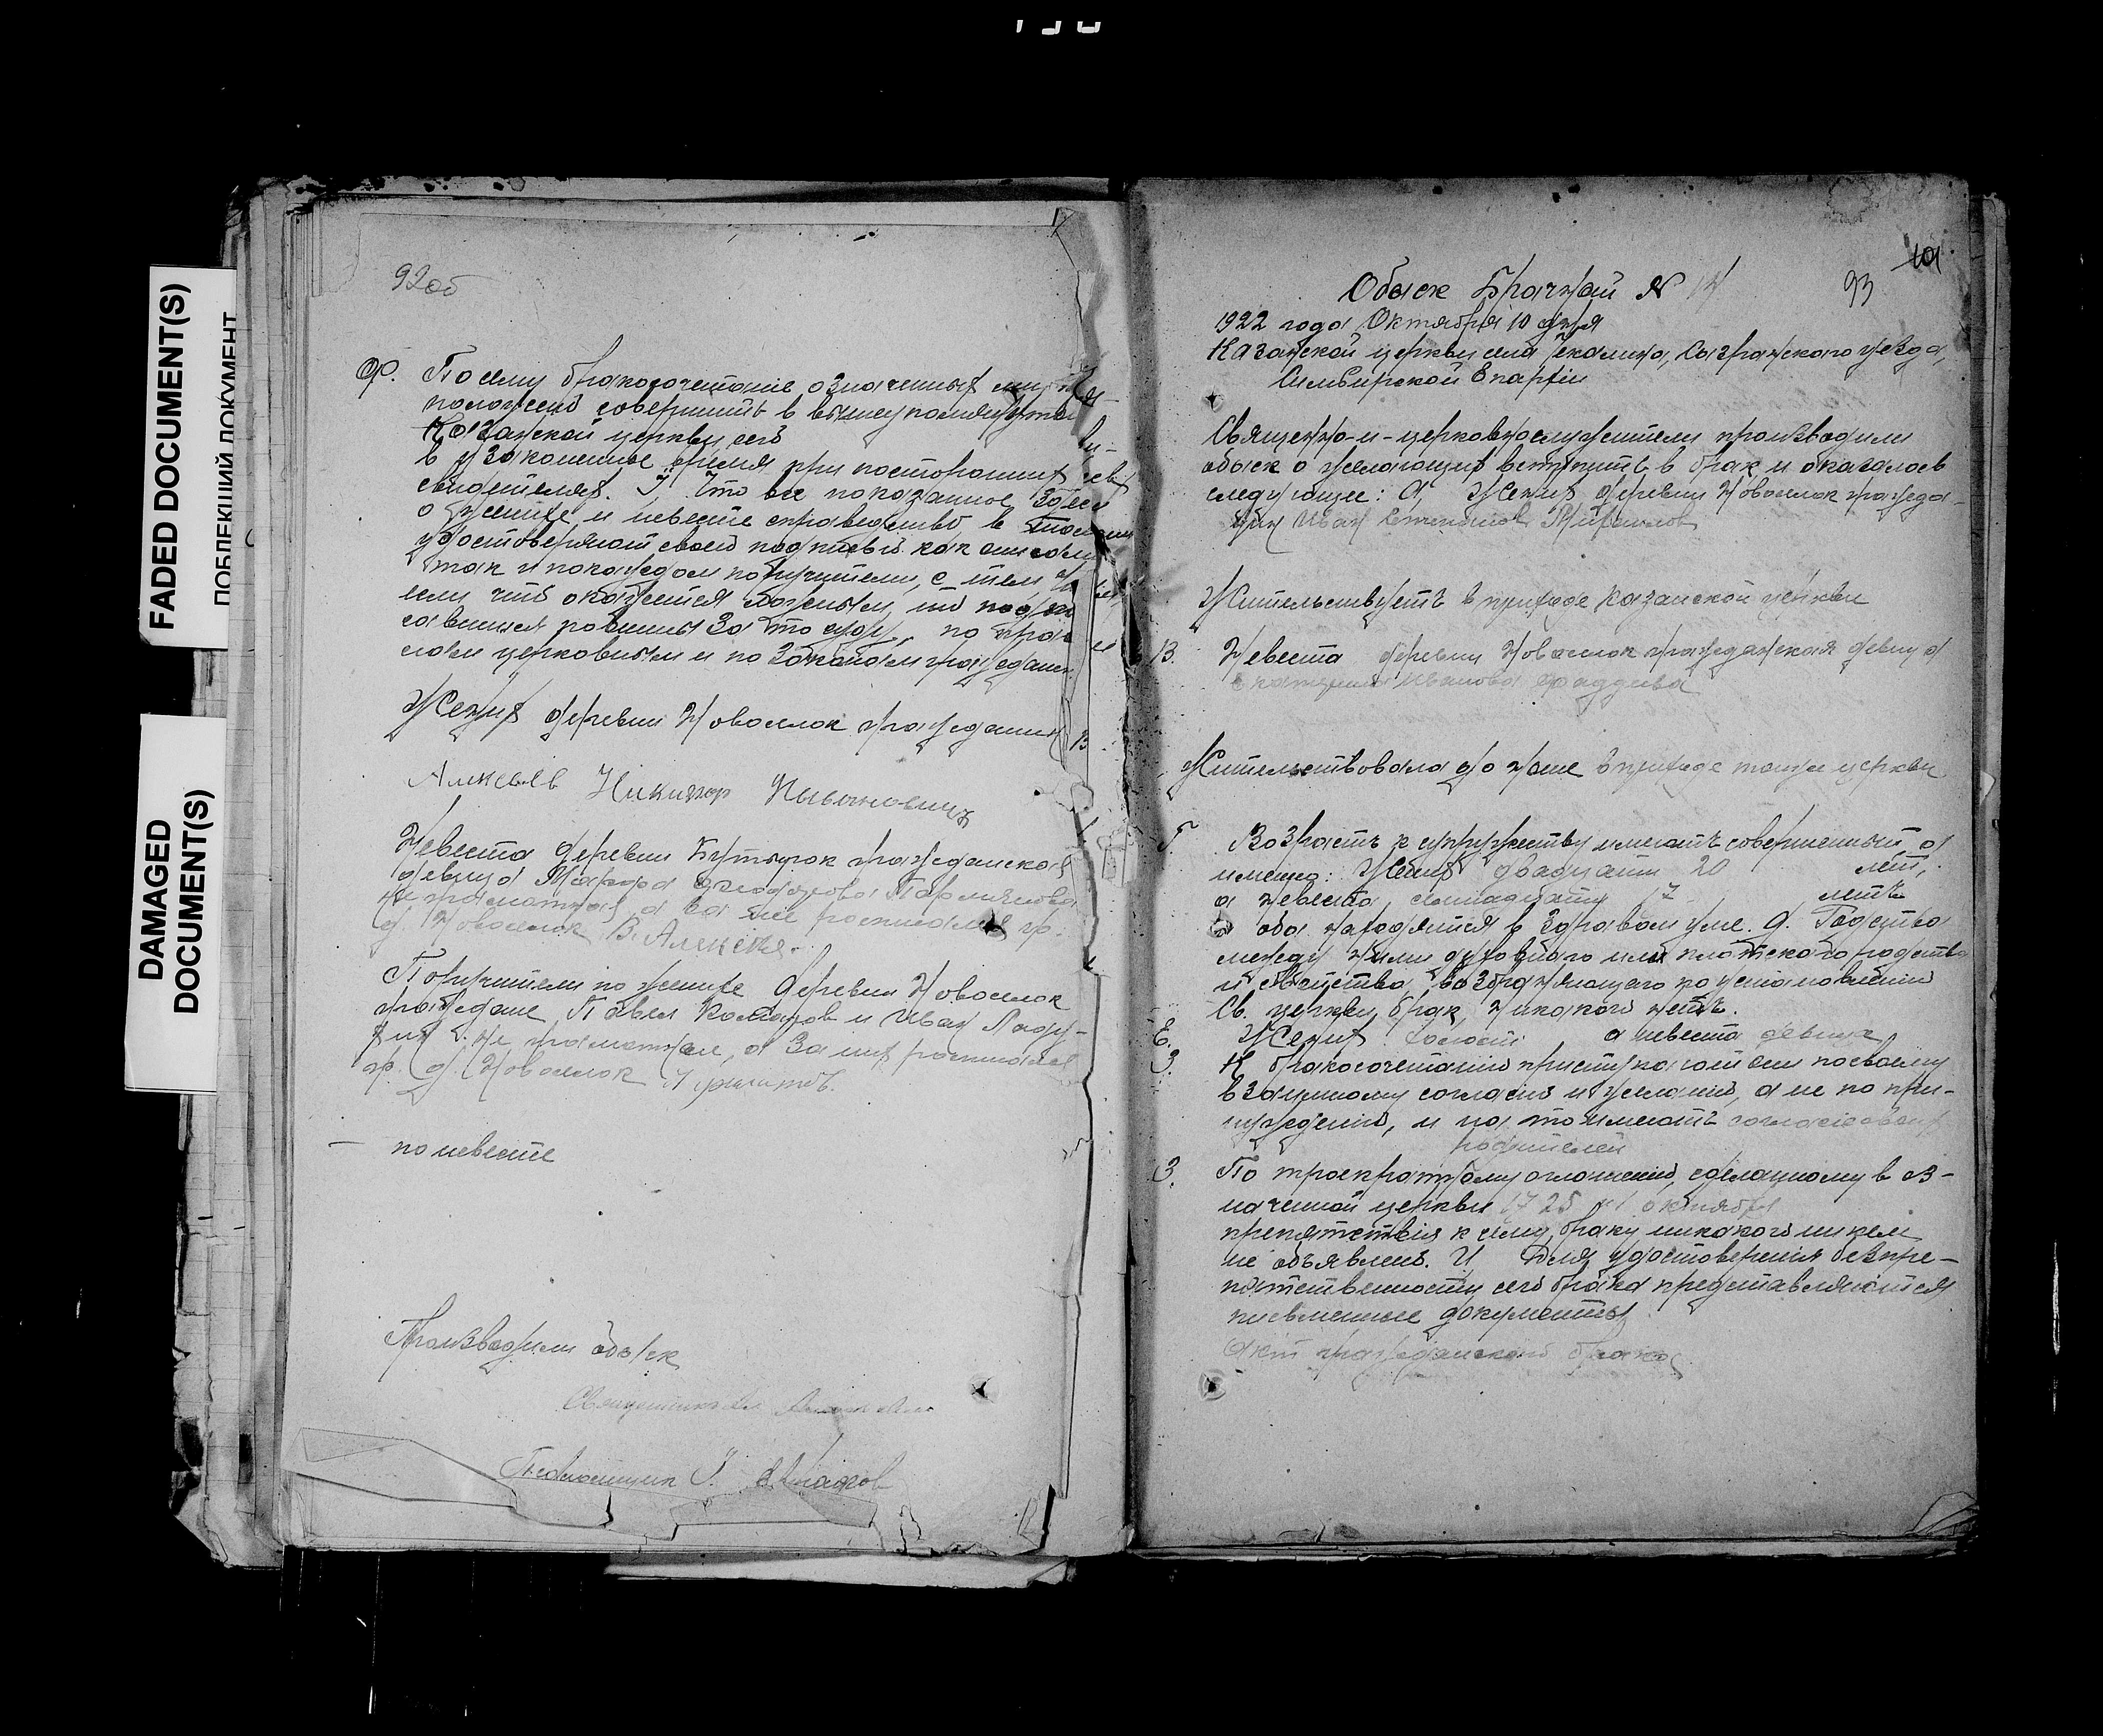 FADED DOCUMENT(S)
ПОБЛЕКШИЙ ДОКУМЕНТ
DAMAGED
DOCUMENT(S)
92об
Ф. По сему бракосочетание означенных лиц
положено совершить в вышеупомянутой
Казанской церкви сего
в узаконенное время при посторонних
свидетелях. I, Что все показанное здесь
о женихе и невесте справедливо в том
удостоверяют своей подписью как они сами
так и по каждом поручители, с тем
если что окажется ложным, то
повинны за то суду, по
церковным и по законам граждан.
Жених деревни Новоселок гражданин
Алексьев Никифор Ивановичъ
Невеста деревни Кутырок гражданская
девица Марфа
неграматная, а за нее росписался гр.
д. Новоселок В. Алексев.
Поручители по женихе деревни Новоселок
граждане Павел Комаров и Иван
не граматные, а за них росписался
гр. д. Новоселок
по невесте
Производили обыск
Священник
Псаломщик
Обыск Брачный № 14
93
101
1922 года Октября 10 дня
Казанской церкви села Сызранского уезда,
Симбирской Епархiи
Священно-и-церковнослужители производили
обыск о желающих вступить в брак и оказалось
следующее: А, Жених деревни Новоселок гражда-
нин Иван
Жительствуетъ в приходе Казанской церкви
В. Невеста деревни Новоселок гражданская девица
Екатерина Иванова Фаддеева
Жительствовала до ныне в приходе тойже церкви
Г Возрастъ к супружеству имеютъ совершенный, а
имено: Жених двадцати 20 лет,
а невеста семнадцати 17 летъ
оба находятся в здравом уме. Д. Родства
между ними духовного или плотского родства
и свойства, возбраняющего по установлению
Св. церкви брак, никакого нетъ.
Е. Жених холост а невеста девица
З. К бракосочетанию приступают они по своему
взаимному согласию и желанию, а не по при-
нуждению, и на то имеютъ согласие своих
родителей
З. По троекратному оглашению, сделанному в оз-
наченной церкви 17 25 и 1 октября
препятствiя к сему браку никакого никем
не объявлено. И Для удостоверенiя безпре-
пятственности сего брака представляются
письменные документы
Акт гражданского брака